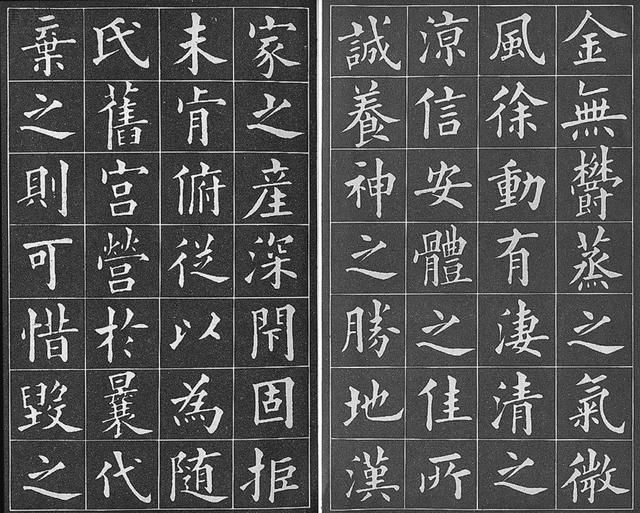 金無欝蒸之氣微
風徐動有淒清之
涼信安體之佳所
誠養神之勝地漢
家之産深閇固拒
未肯俯從以為隨
氏舊宮營於曩代
棄之則可惜毀之